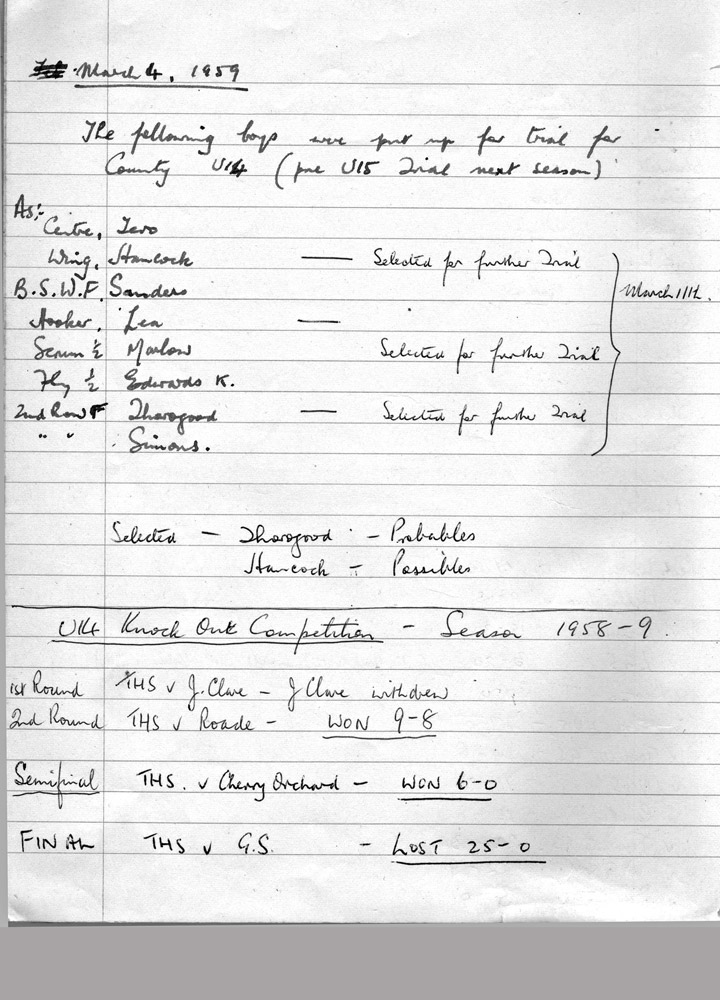 March 4, 1959
The following boys were put up for trial for
County U14 (pre U15 Trial next season)
As:-
Centre, Tero
Wing, Hancock — Selected for further Trial
B.S.W.F. Sanders
March 11th.
Hooker, Lea —
Scrum ½ Marlow Selected for further Trial
Fly ½ Edwards K.
2nd Row F Thorogood — Selected for further Trial
" " Simons.
Selected — Thorogood — Probables
Hancock — Possibles
U14 Knock Out Competition - Season 1958-9.
1st Round THS v J. Clare - J Clare withdrew
2nd Round THS v Roade - WON 9-8
Semifinal THS. v Cherry Orchard - WON 6-0
FINAL THS v G.S. - LOST 25-0